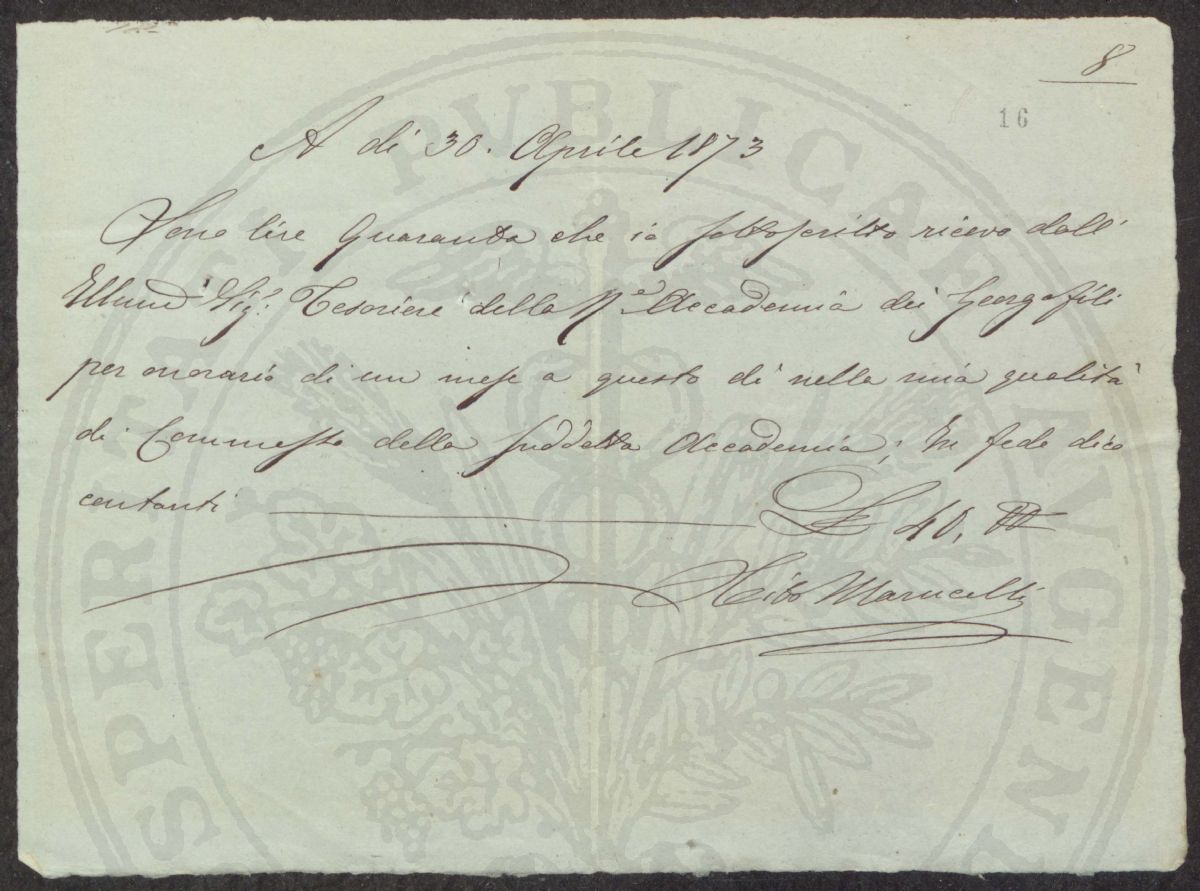 8
16
A dì 30. Aprile 1873
Sono lire Quaranta che io sottoscritto ricevo dall'
Ill.mo Sig.r Tesoriere della R.e Accademia dei Georgofili
per onorario di un mese a questo dì nella mia qualità
di Commesso della suddetta Accademia; In fede dico
contanti L 40,
Marucelli
PROSPERITATI PVBLICAE AVGENDAE